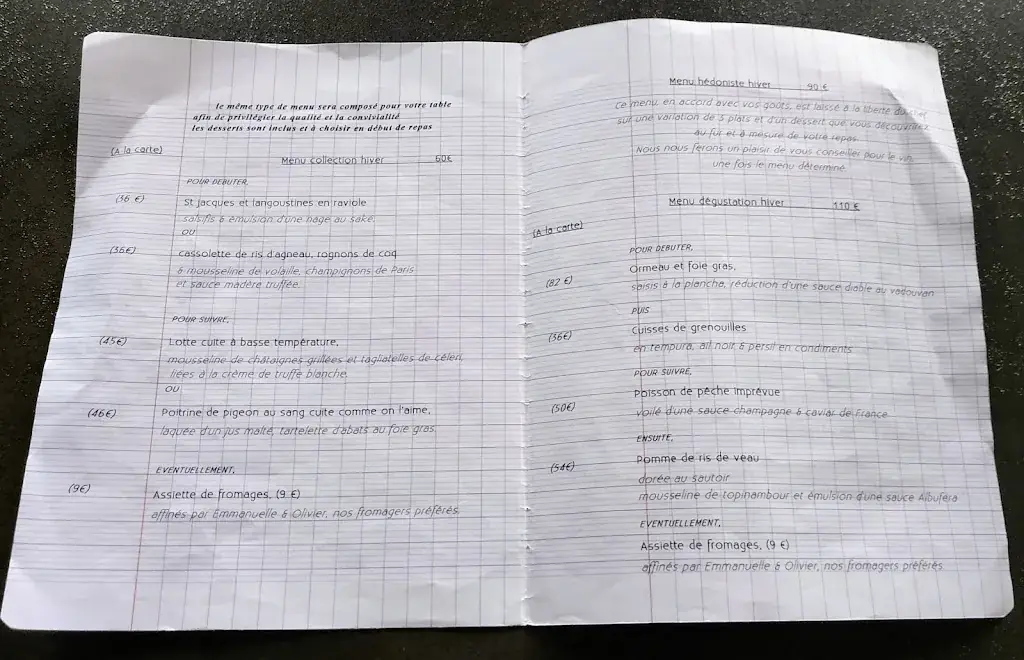 le même type de menu sera composé pour votre table
afin de privilégier la qualité et la convivialité
les desserts sont inclus et à choisir en début de repas
(A la carte)
Menu collection hiver 60€
POUR DEBUTER,
(36 €) St jacques et langoustines en raviole
salsifis & émulsion d'une nage au saké.
OU
(36€) cassolette de ris d'agneau, rognons de coq
& mousseline de volaille, champignons de Paris
et sauce madère truffée.
POUR SUIVRE,
(45€) Lotte cuite à basse température,
mousseline de châtaignes grillées et tagliatelles de céleri,
liées à la crème de truffe blanche.
OU
(46€) Poitrine de pigeon au sang cuite comme on l'aime,
laquée d'un jus malté, tartelette d'abats au foie gras.
EVENTUELLEMENT,
(9€) Assiette de fromages, (9 €)
affinés par Emmanuelle & Olivier, nos fromagers préférés.
Menu hédoniste hiver 90 €
Ce menu, en accord avec vos goûts, est laissé à la liberté du chef
sur une variation de 5 plats et d'un dessert que vous découvrirez
au fur et à mesure de votre repas.
Nous nous ferons un plaisir de vous conseiller pour le vin,
une fois le menu déterminé.
Menu dégustation hiver 110 €
(A la carte)
POUR DEBUTER,
(82 €) Ormeau et foie gras,
saisis à la plancha, réduction d'une sauce diable au vadouvan
PUIS
(36€) Cuisses de grenouilles
en tempura, ail noir & persil en condiments
POUR SUIVRE,
(50€) Poisson de pêche imprévue
voilé d'une sauce champagne & caviar de France
ENSUITE,
(54€) Pomme de ris de veau
dorée au sautoir
mousseline de topinambour et émulsion d'une sauce Albufera
EVENTUELLEMENT,
Assiette de fromages, (9 €)
affinés par Emmanuelle & Olivier, nos fromagers préférés.